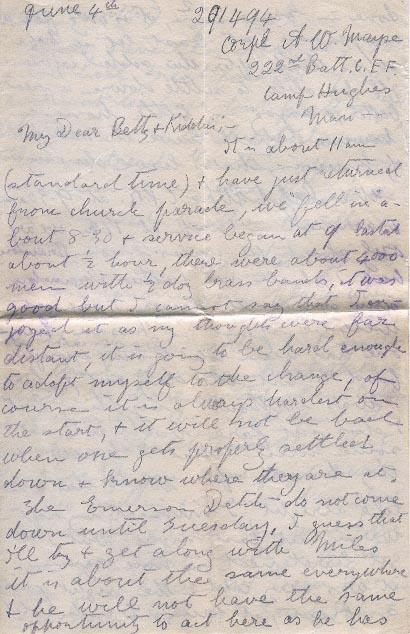 June 4th
291494
Corpl A W Mayse
222nd Batt. C.E.F
Camp Hughes
Man —
My Dear Betty & Kiddies;-
It is about 11 am
(standard time) & have just returned
from church parade, we "fell in" a-
bout 8-30 & service began at 9 lasted
about ½ hour, there were about 4000
men with ½ doz brass bands, it was
good but I cannot say that I en-
joyed it as my thoughts were far
distant, it is going to be hard enough
to adopt myself to the change, of
course it is always hardest on
the start, & it will not be bad
when one gets properly settled
down & know where they are at.
The Emerson Detch do not come
down until Tuesday, I guess that
I'll try & get along with Miles
it is about the same everywhere
& he will not have the same
opportunity to act here as he has